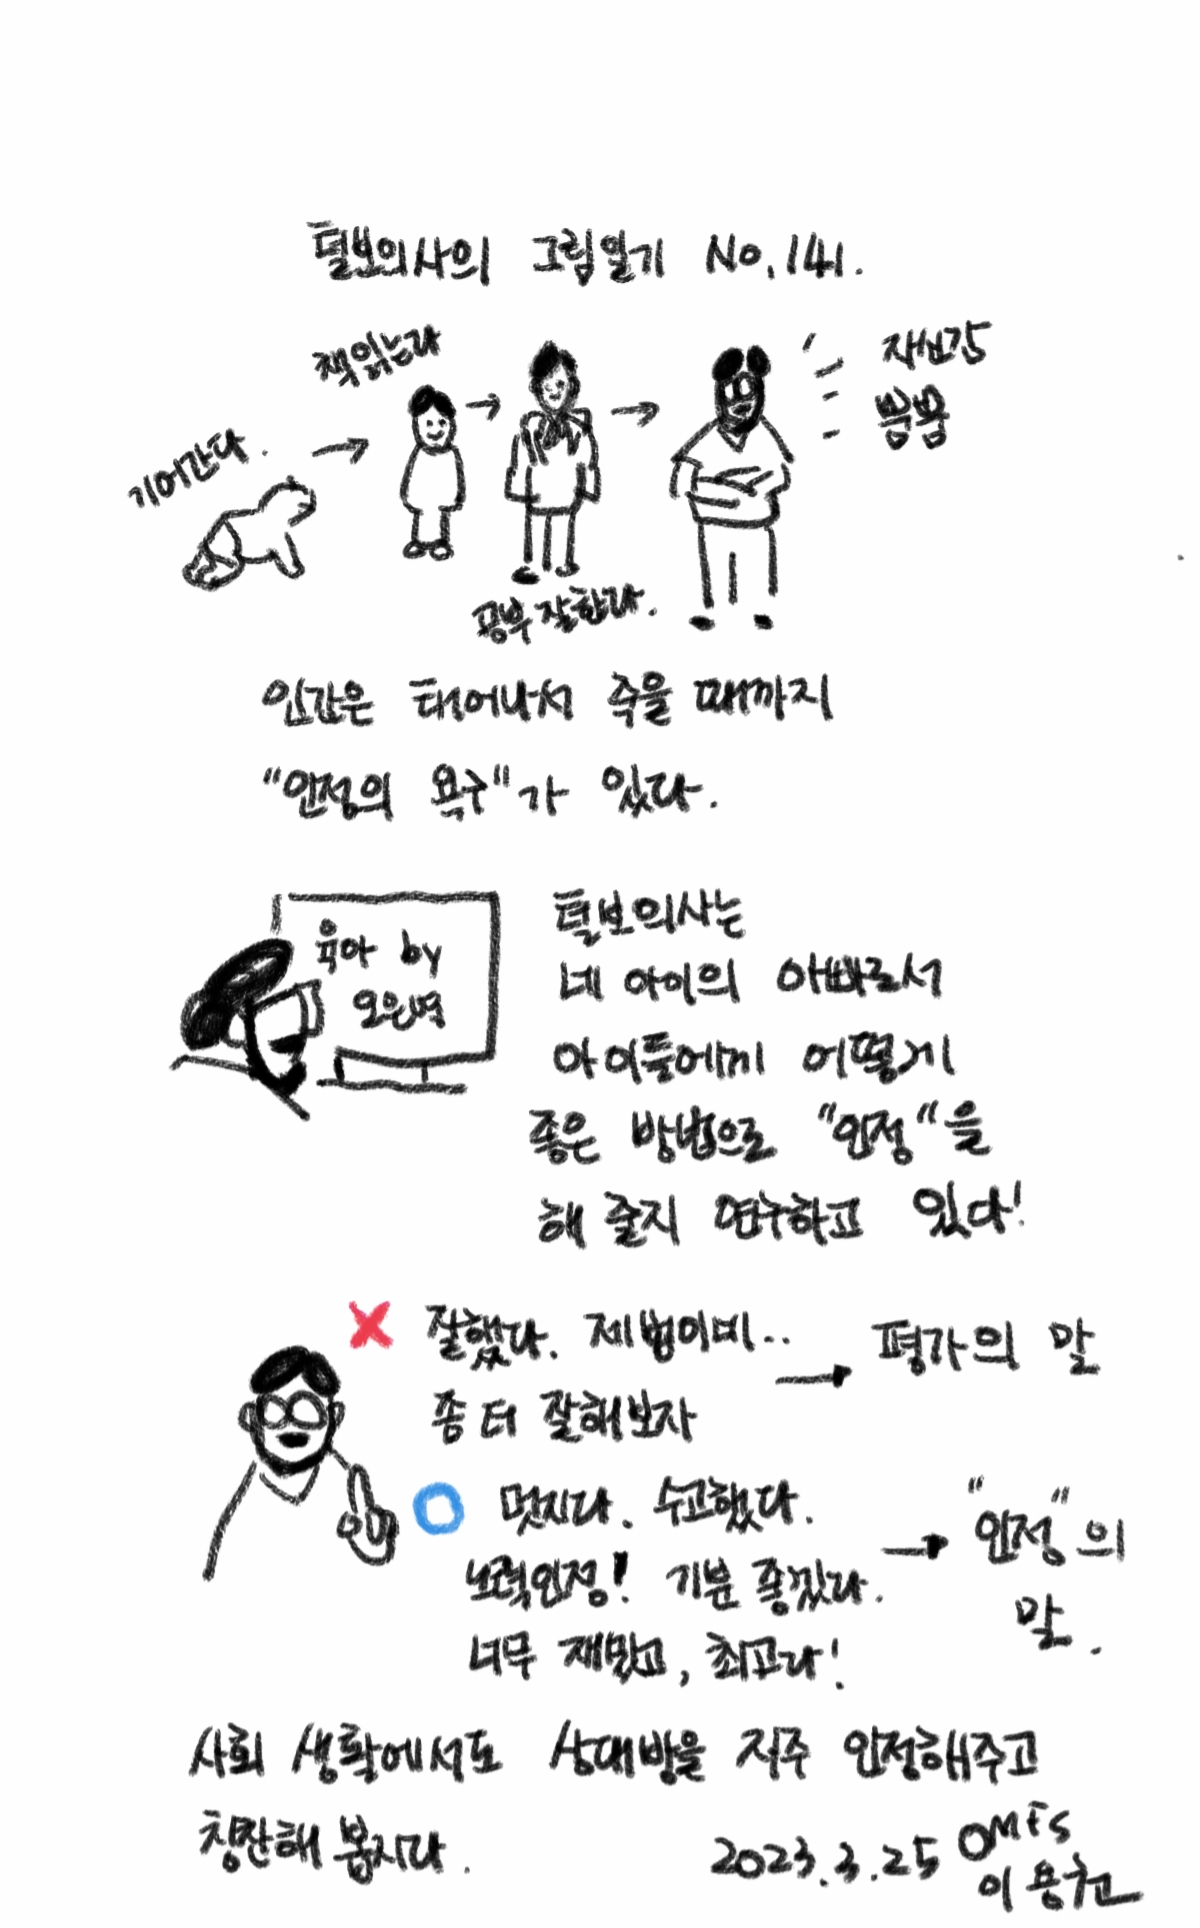 털보의사의 그림일기 No.141.
책읽는다
자신감
뿜뿜
기어간다.
공부 잘한다.
인간은 태어나서 죽을 때까지
"인정의 욕구"가 있다.
육아 by
오은영
털보의사는
네 아이의 아빠로서
아이들에게 어떻게
좋은 방법으로 "인정"을
해 줄지 연구하고 있다!
잘했다. 제법이네..
좀 더 잘해보자
평가의 말
멋지다. 수고했다.
노력인정! 기분 좋겠다.
너무 재밌고, 최고다!
"인정"의
말.
사회 생활에서도 상대방을 자주 인정해주고
칭찬해 봅시다.
2023.3.25 OMFS
이용권